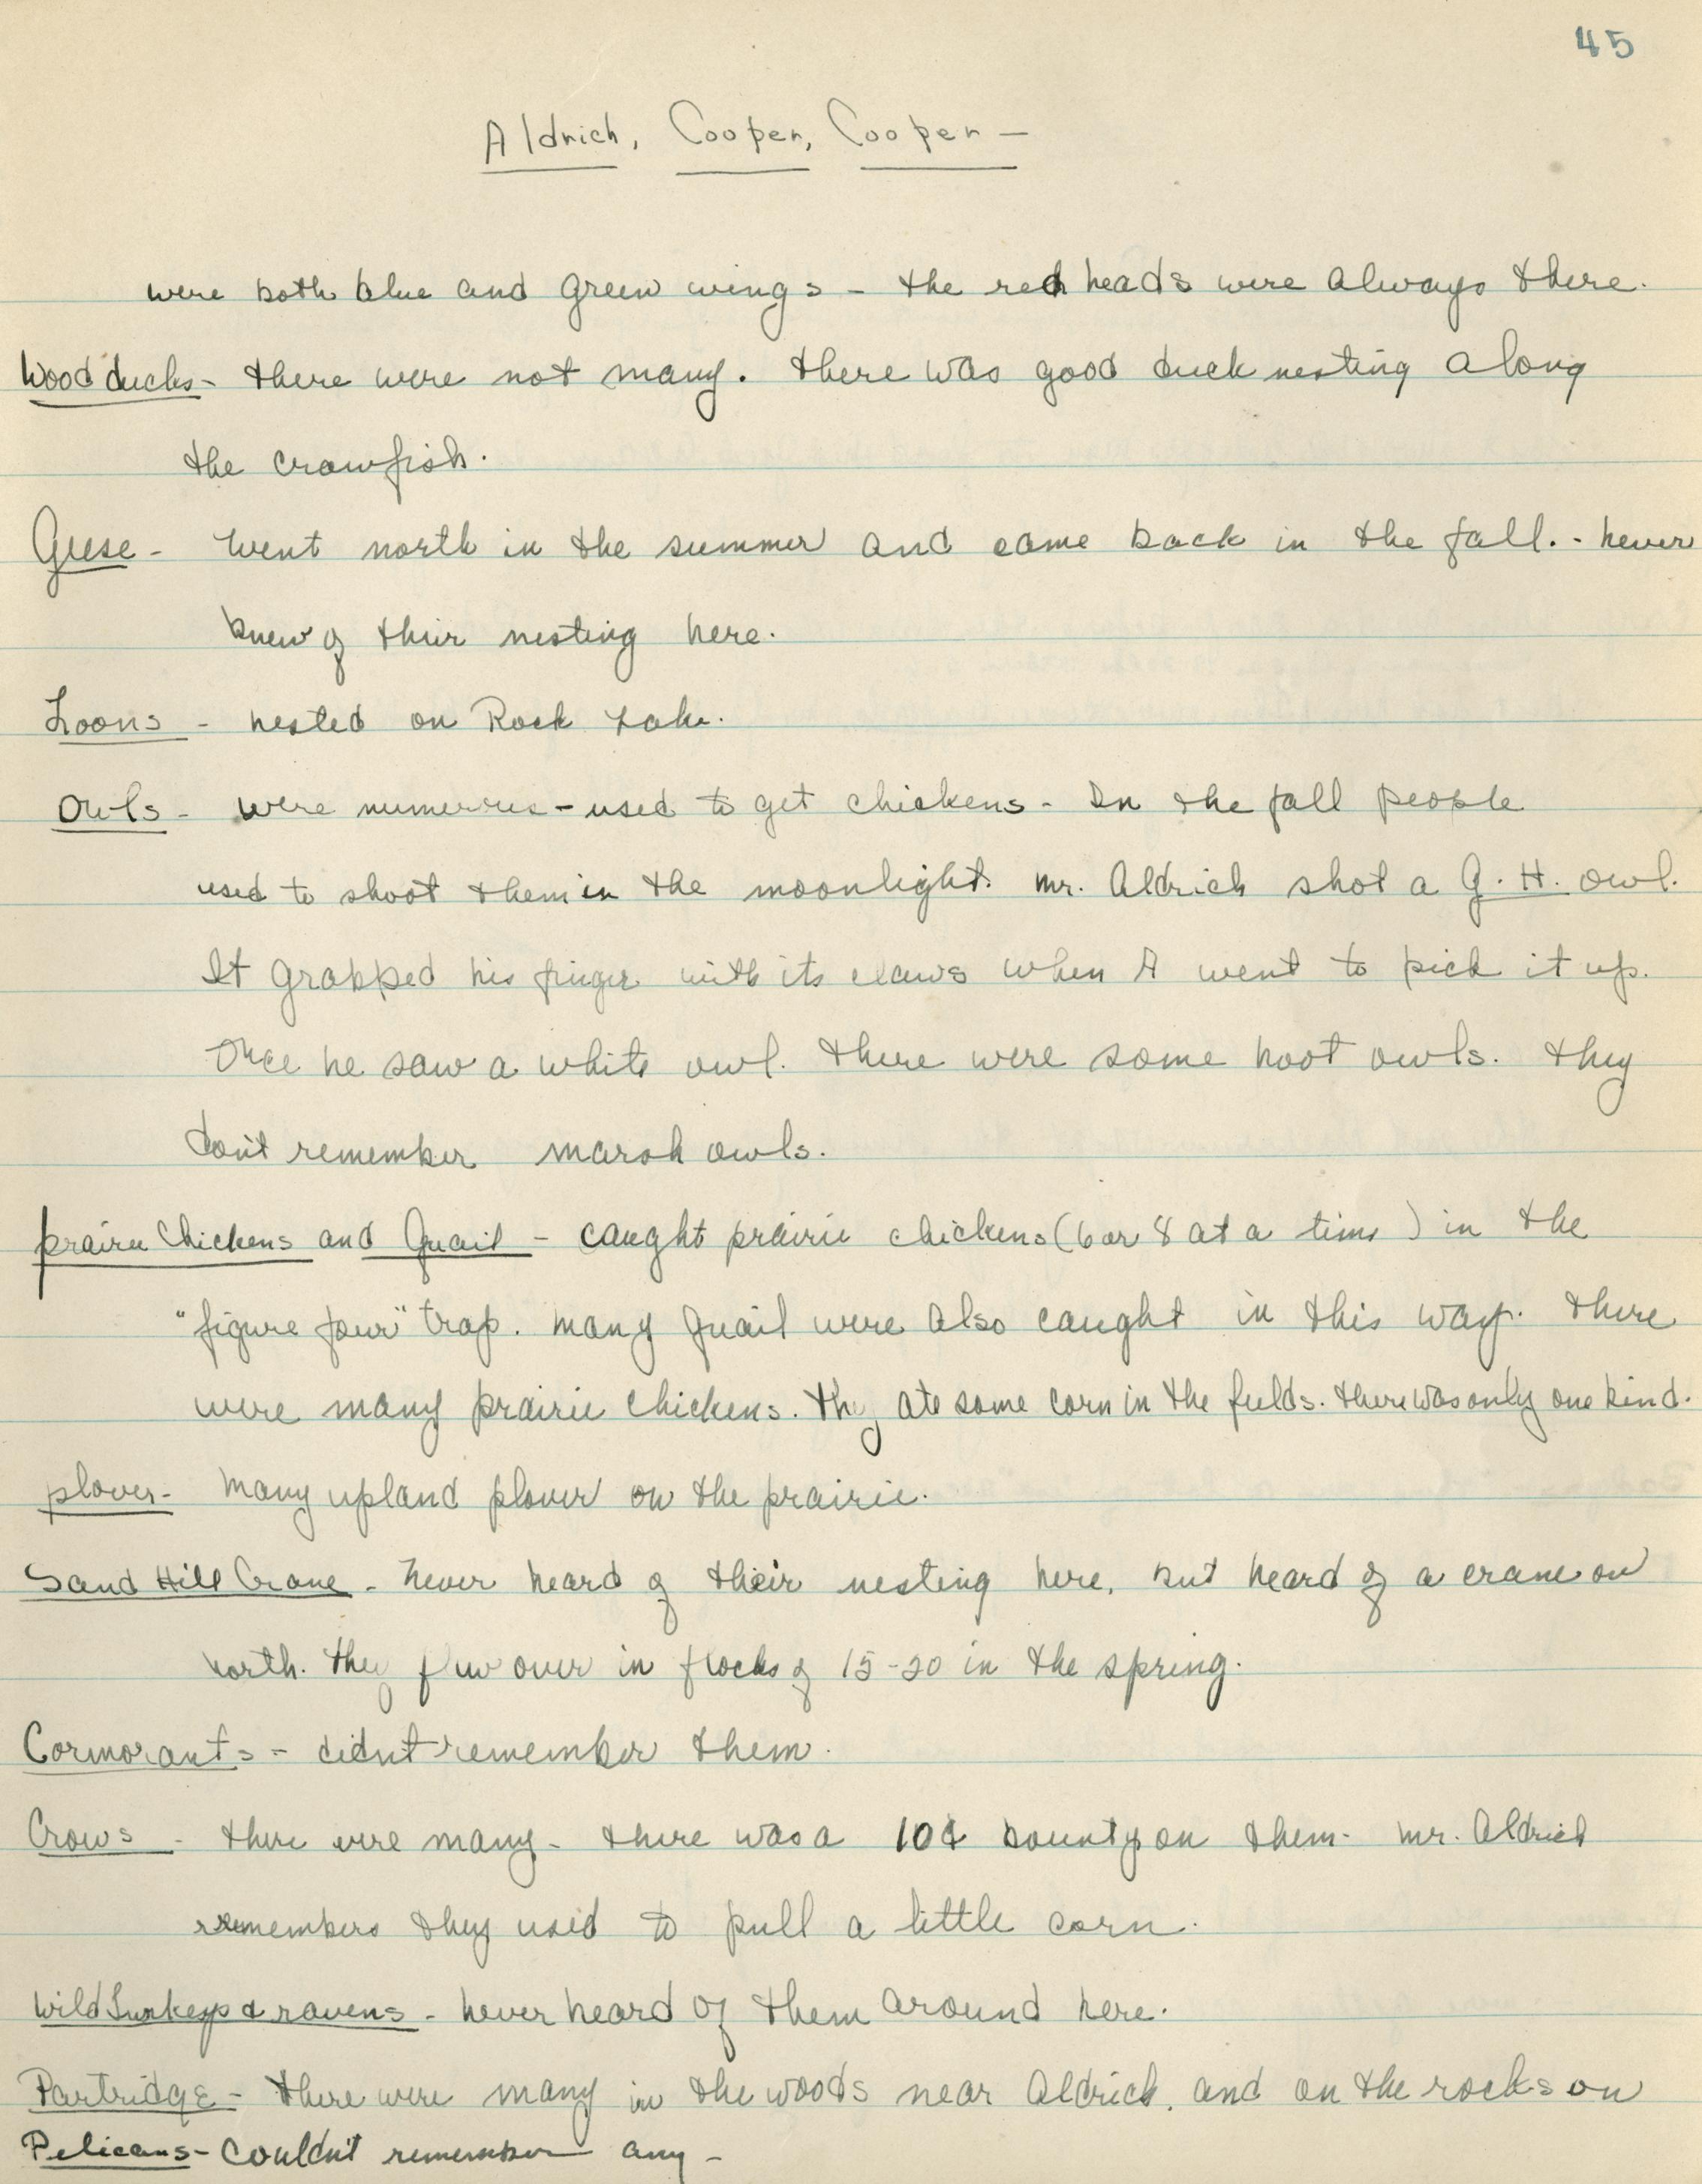 45
Aldrich, Cooper, Cooper -
were both blue and green wings - the red heads were always there.
Wood ducks - there were not many. there was good duck nesting along
the crawfish.
Geese - went north in the summer and came back in the fall. - never
knew of their nesting here.
Loons - nested on Rock Lake.
Owls - were numerous - used to get chickens - In the fall people
used to shoot them in the moonlight. Mr. Aldrich shot a G. H. owl.
It grabbed his finger with its claws when A went to pick it up.
Once he saw a white owl. there were some hoot owls. they
don't remember marsh owls.
prairie Chickens and Quail - caught prairie chickens (6 or 8 at a time) in the
"figure four" trap. many quail were also caught in this way. there
were many prairie chickens. they ate some corn in the fields. there was only one kind.
plover - many upland plover on the prairie.
Sand Hill Crane - never heard of their nesting here, but heard of a crane on
north. they flew over in flocks of 15-20 in the spring.
Cormorants - didnt remember them.
Crows - there were many - there was a 10¢ bounty on them - mr. Aldrich
remembers they used to pull a little corn.
Wild Turkeys & ravens - never heard of them around here.
Partridge - there were many in the woods near Aldrich, and on the rocks on
Pelicans - couldn't remember any -